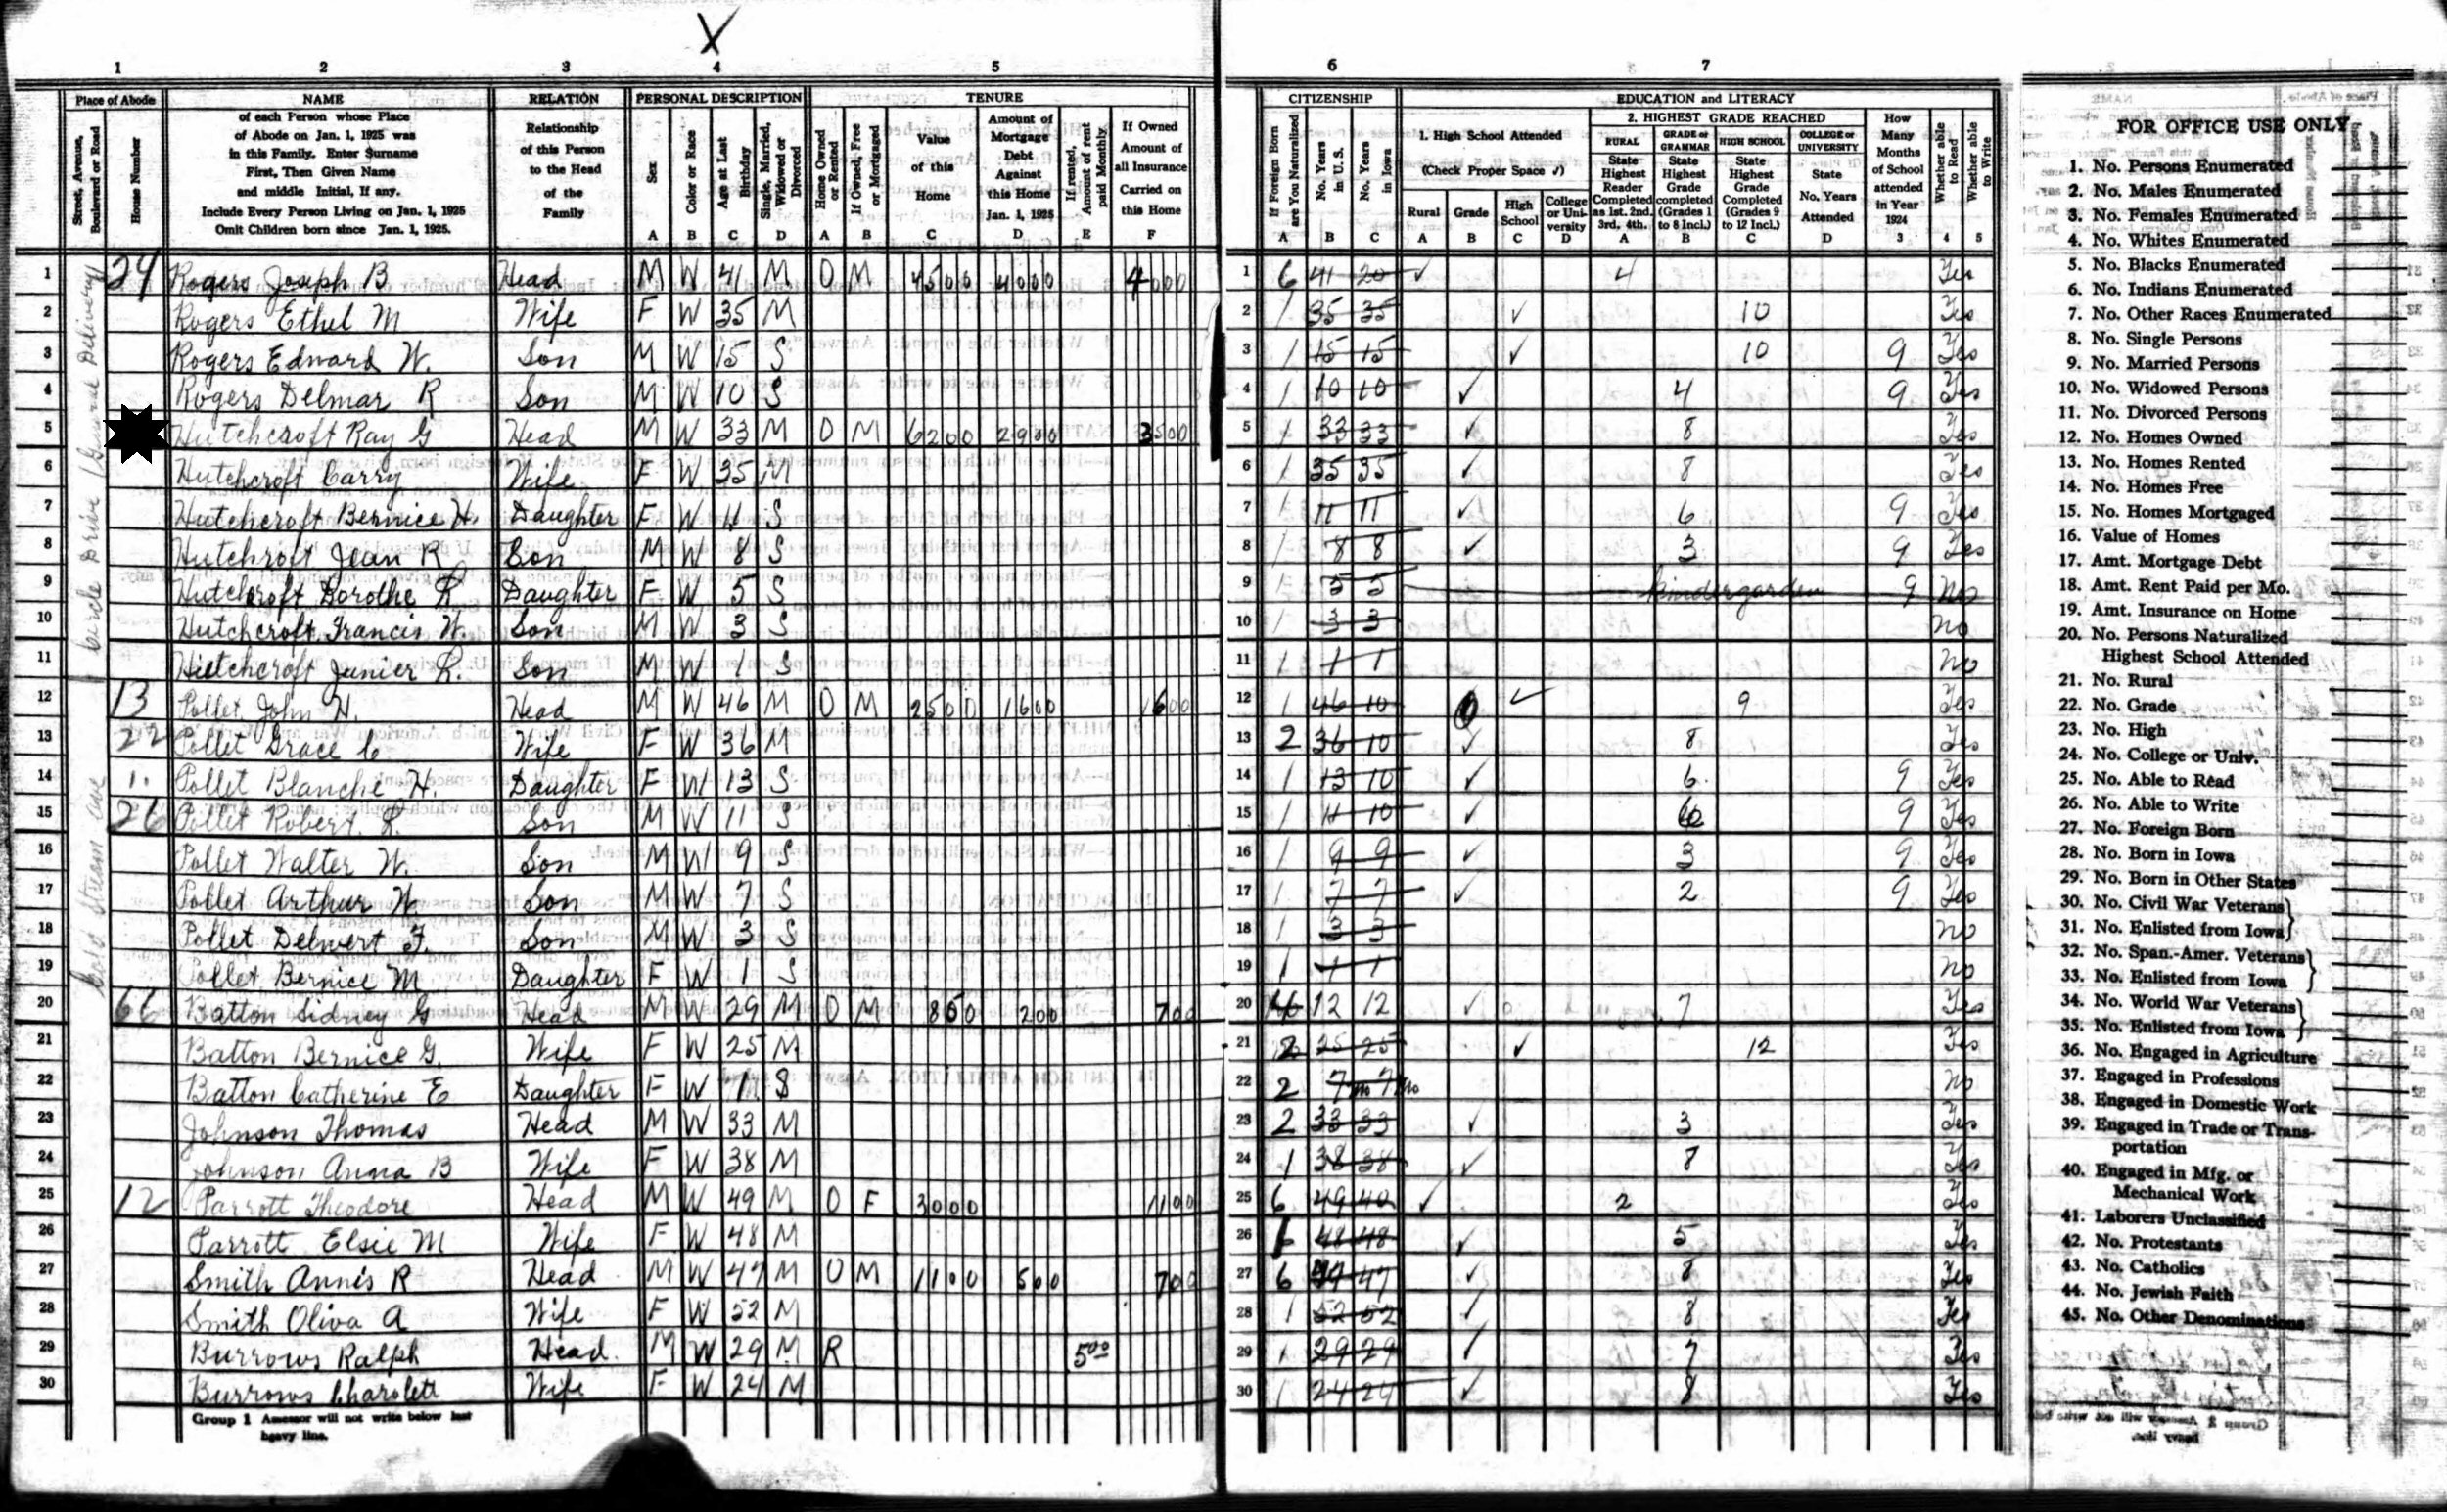 X
1 2 3 4 5 6 7
Place of Abode NAME RELATION PERSONAL DESCRIPTION TENURE CITIZENSHIP EDUCATION and LITERACY
Street, Avenue, Boulevard or Road
House Number
of each Person whose Place
of Abode on Jan. 1, 1925 was
in this Family. Enter Surname
First, Then Given Name
and middle Initial, If any.
Include Every Person Living on Jan. 1, 1925
Omit Children born since Jan. 1, 1925.
Relationship
of this Person
to the Head
of the
Family
Sex
Color or Race
Age at Last Birthday
Single, Married, Widowed or Divorced
Home Owned or Rented
If Owned, Free or Mortgaged
Value
of this
Home
Amount of
Mortgage
Debt
Against
this Home
Jan. 1, 1925
If rented, Amount of rent paid Monthly
If Owned
Amount of
all Insurance
Carried on
this Home
A B C D A B C D E F
If Foreign Born are You Naturalized
No. Years in U. S.
No. Years in Iowa
A B C
1. High School Attended
(Check Proper Space ✓)
Rural Grade High School College or University
A B C D
2. HIGHEST GRADE REACHED
RURAL
State Highest Reader Completed as 1st. 2nd. 3rd. 4th.
GRADE or GRAMMAR
State Highest Grade completed (Grades 1 to 8 Incl.)
HIGH SCHOOL
State Highest Grade Completed (Grades 9 to 12 Incl.)
COLLEGE or UNIVERSITY
State No. Years Attended
A B C D
How Many Months of School attended in Year 1924
3
Whether able to Read
4
Whether able to Write
5
Circle Drive (General Delivery)
1 24 Rogers Joseph B Head M W 41 M O M 4500 4000 4000 1 6 41 20 ✓ 4 Yes
2 Rogers Ethel M Wife F W 35 M 2 1 35 35 ✓ 10 Yes
3 Rogers Edward W. Son M W 15 S 3 1 15 15 ✓ 10 9 Yes
4 Rogers Delmar R Son M W 10 S 4 1 10 10 ✓ 4 9 Yes
5 Hutchcroft Ray G Head M W 33 M O M 6200 2900 3500 5 1 33 33 ✓ 8 Yes
6 Hutchcroft Carry Wife F W 35 M 6 1 35 35 ✓ 8 Yes
7 Hutchcroft Bernice H. Daughter F W 11 S 7 1 11 11 ✓ 6 9 Yes
8 Hutchroft Jean R Son M W 8 S 8 1 8 8 ✓ 3 9 Yes
9 Hutchcroft Dorothe R Daughter F W 5 S 9 1 5 5 kindergarden 9 No
10 Hutchcroft Francis W. Son M W 3 S 10 1 3 3 no
11 Hutchcroft Junier R. Son M W 1 S 11 1 1 1 no
12 13 Pollet John H. Head M W 46 M O M 2500 1600 1600 12 1 46 10 ✓ 9 Yes
13 22 Pollet Grace C Wife F W 36 M 13 2 36 10 ✓ 8 Yes
14 1. Pollet Blanche H. Daughter F W 13 S 14 1 13 10 ✓ 6 9 Yes
15 26 Pollet Robert L. Son M W 11 S 15 1 11 10 ✓ 6 9 Yes
16 Pollet Walter W. Son M W 9 S 16 1 9 9 ✓ 3 9 Yes
17 Pollet Arthur W Son M W 7 S 17 1 7 7 ✓ 2 9 Yes
18 Pollet Delwert F. Son M W 3 S 18 1 3 3 no
19 Pollet Bernice M Daughter F W 1 S 19 1 1 1 no
20 66 Batton Sidney G Head M W 29 M O M 850 200 700 20 12 12 ✓ 7 Yes
21 Batton Bernice G. Wife F W 25 M 21 2 25 25 ✓ 12 Yes
22 Batton Catherine E Daughter F W 1 S 22 2 7mo 7mo no
23 Johnson Thomas Head M W 33 M 23 2 33 33 ✓ 3 Yes
24 Johnson Anna B Wife F W 38 M 24 1 38 38 ✓ 8 Yes
25 12 Parrott Theodore Head M W 49 M O F 3000 1100 25 6 49 40 ✓ 2 Yes
26 Parrott Elsie M Wife F W 48 M 26 48 48 ✓ 5 Yes
27 Smith Annis R Head M W 47 M O M 1100 500 700 27 6 47 47 ✓ 8 Yes
28 Smith Oliva A Wife F W 52 M 28 1 52 52 ✓ 8 Yes
29 Burrows Ralph Head. M W 29 M R 5⁰⁰ 29 1 29 29 ✓ 7 Yes
30 Burrows Charolett Wife F W 24 M 30 1 24 24 ✓ 8 Yes
Cold Stream ave
Group 1 Assessor will not write below last
heavy line.
FOR OFFICE USE ONLY
1. No. Persons Enumerated
2. No. Males Enumerated
3. No. Females Enumerated
4. No. Whites Enumerated
5. No. Blacks Enumerated
6. No. Indians Enumerated
7. No. Other Races Enumerated
8. No. Single Persons
9. No. Married Persons
10. No. Widowed Persons
11. No. Divorced Persons
12. No. Homes Owned
13. No. Homes Rented
14. No. Homes Free
15. No. Homes Mortgaged
16. Value of Homes
17. Amt. Mortgage Debt
18. Amt. Rent Paid per Mo.
19. Amt. Insurance on Home
20. No. Persons Naturalized
Highest School Attended
21. No. Rural
22. No. Grade
23. No. High
24. No. College or Univ.
25. No. Able to Read
26. No. Able to Write
27. No. Foreign Born
28. No. Born in Iowa
29. No. Born in Other States
30. No. Civil War Veterans
31. No. Enlisted from Iowa
32. No. Span.-Amer. Veterans
33. No. Enlisted from Iowa
34. No. World War Veterans
35. No. Enlisted from Iowa
36. No. Engaged in Agriculture
37. Engaged in Professions
38. Engaged in Domestic Work
39. Engaged in Trade or Trans-
portation
40. Engaged in Mfg. or
Mechanical Work
41. Laborers Unclassified
42. No. Protestants
43. No. Catholics
44. No. Jewish Faith
45. No. Other Denominations